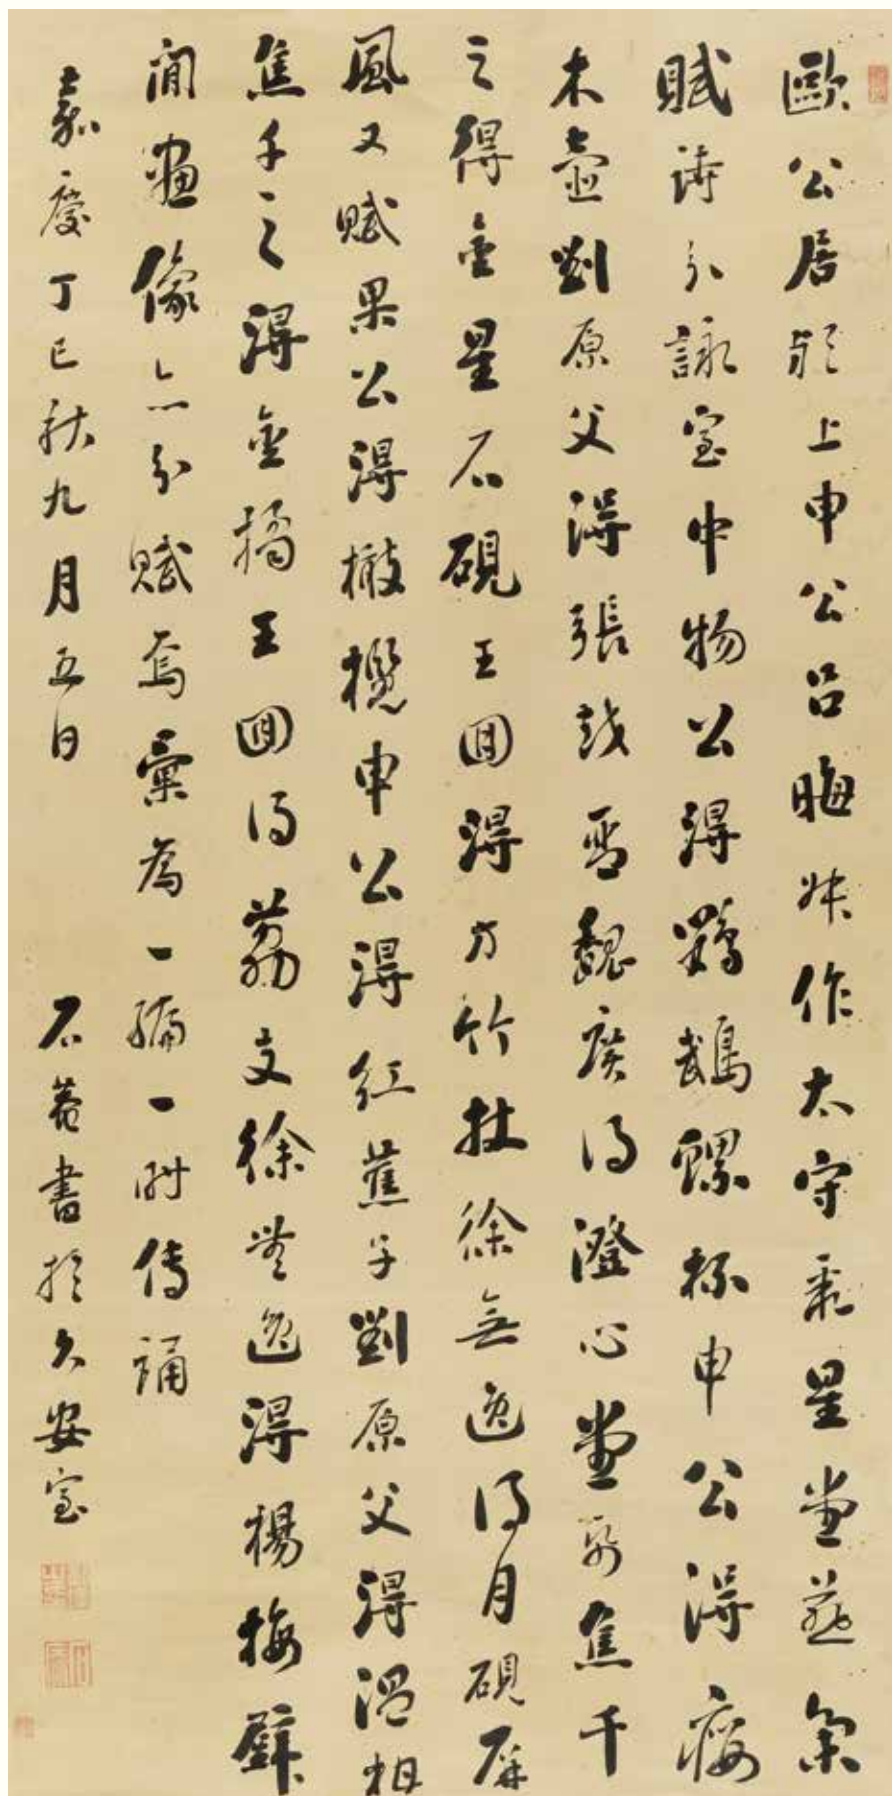 歐公居潁上申公呂晦叔作太守聚星堂燕集
賦詩分詠室中物公得鸚鵡螺杯申公得癭
木壺劉原父得張越琴魏廣得澄心堂紙焦千
之得金星石硯王回得方竹杖徐無逸得月硯屏
風又賦果公得橄欖申公得紅蕉子劉原父得溫柑
焦千之得金橘王回得荔支徐無逸得楊梅壁
間畫像亦分賦焉彙為一編一時傳誦
嘉慶丁巳秋九月五日 石菴書於久安室